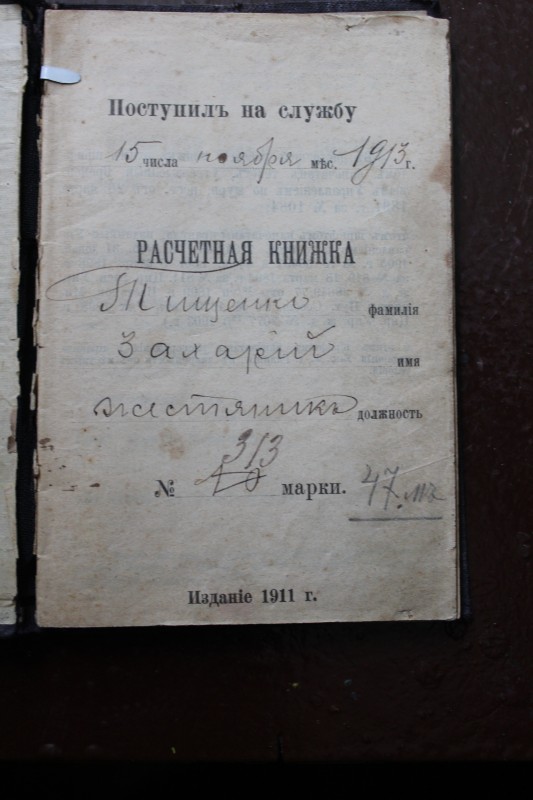 Поступилъ на службу
15 числа ноября мѣс. 1913 г.
РАСЧЕТНАЯ КНИЖКА
Тищенко фамилія
Захарій имя
жестяникъ должность
313
№ марки. 47
Изданіе 1911 г.